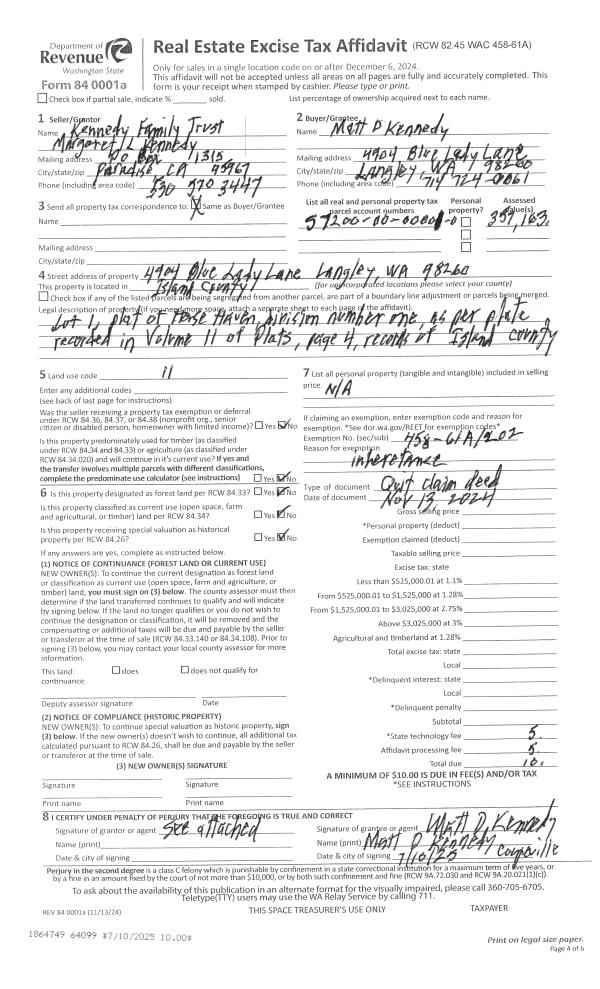 Department of
Revenue
Washington State
Form 84 0001a
Real Estate Excise Tax Affidavit (RCW 82.45 WAC 458-61A)
Only for sales in a single location code on or after December 6, 2024.
This affidavit will not be accepted unless all areas on all pages are fully and accurately completed. This
form is your receipt when stamped by cashier. Please type or print.
Check box if partial sale, indicate % sold. List percentage of ownership acquired next to each name.
1 Seller/Grantor
Name Kennedy Family Trust
Margaret L Kennedy
Mailing address PO Box 11315
City/state/zip Paradise CA 95967
Phone (including area code) 530 570 3447
2 Buyer/Grantee
Name Matt D Kennedy
Mailing address 4904 Blue Lady Lane
City/state/zip Langley, WA 98260
Phone (including area code) 714 724-0061
3 Send all property tax correspondence to: Same as Buyer/Grantee
Name
Mailing address
City/state/zip
List all real and personal property tax parcel account numbers
Personal property?
Assessed value(s)
357,163.
4 Street address of property 4904 Blue Lady Lane Langley, WA 98260
This property is located in Island County (for unincorporated locations please select your county)
Check box if any of the listed parcels are being segregated from another parcel, are part of a boundary line adjustment or parcels being merged.
Legal description of property (if you need more space, attach a separate sheet to each page of the affidavit).
Lot 1, plat of Haven, Division number one, as per plate
recorded in Volume 11 of Plats, page 4, records of Island county
5 Land use code 11
Enter any additional codes
(see back of last page for instructions)
Was the seller receiving a property tax exemption or deferral
under RCW 84.36, 84.37, or 84.38 (nonprofit org., senior
citizen or disabled person, homeowner with limited income)? Yes No
Is this property predominately used for timber (as classified
under RCW 84.34 and 84.33) or agriculture (as classified under
RCW 84.34.020) and will continue in it's current use? If yes and
the transfer involves multiple parcels with different classifications,
complete the predominate use calculator (see instructions) Yes No
6 Is this property designated as forest land per RCW 84.33? Yes No
Is this property classified as current use (open space, farm
and agricultural, or timber) land per RCW 84.34? Yes No
Is this property receiving special valuation as historical
property per RCW 84.26? Yes No
If any answers are yes, complete as instructed below.
(1) NOTICE OF CONTINUANCE (FOREST LAND OR CURRENT USE)
NEW OWNER(S): To continue the current designation as forest land
or classification as current use (open space, farm and agriculture, or
timber) land, you must sign on (3) below. The county assessor must then
determine if the land transferred continues to qualify and will indicate
by signing below. If the land no longer qualifies or you do not wish to
continue the designation or classification, it will be removed and the
compensating or additional taxes will be due and payable by the seller
or transferor at the time of sale (RCW 84.33.140 or 84.34.108). Prior to
signing (3) below, you may contact your local county assessor for more
information.
This land: does does not qualify for
continuance.
Deputy assessor signature Date
(2) NOTICE OF COMPLIANCE (HISTORIC PROPERTY)
NEW OWNER(S): To continue special valuation as historic property, sign
(3) below. If the new owner(s) doesn't wish to continue, all additional tax
calculated pursuant to RCW 84.26, shall be due and payable by the seller
or transferor at the time of sale.
(3) NEW OWNER(S) SIGNATURE
Signature Signature
Print name Print name
7 List all personal property (tangible and intangible) included in selling
price. N/A
If claiming an exemption, enter exemption code and reason for
exemption. *See dor.wa.gov/REET for exemption codes*
Exemption No. (sec/sub) 458-61A/202
Reason for exemption
inheretance
Type of document Quit claim deed
Date of document Nov 13, 2024
Gross selling price
*Personal property (deduct)
Exemption claimed (deduct)
Taxable selling price
Excise tax: state
Less than $525,000.01 at 1.1%
From $525,000.01 to $1,525,000 at 1.28%
From $1,525,000.01 to $3,025,000 at 2.75%
Above $3,025,000 at 3%
Agricultural and timberland at 1.28%
Total excise tax: state
Local
*Delinquent interest: state
Local
*Delinquent penalty
Subtotal
*State technology fee 5.
Affidavit processing fee 5.
Total due 10.
A MINIMUM OF $10.00 IS DUE IN FEE(S) AND/OR TAX
*SEE INSTRUCTIONS
8 I CERTIFY UNDER PENALTY OF PERJURY THAT THE FOREGOING IS TRUE AND CORRECT
Signature of grantor or agent See attached
Name (print)
Date & city of signing
Signature of grantee or agent Matt D. Kennedy
Name (print) Matt D Kennedy
Date & city of signing 7/10/25 Coupeville
Perjury in the second degree is a class C felony which is punishable by confinement in a state correctional institution for a maximum term of five years, or
by a fine in an amount fixed by the court of not more than $10,000, or by both such confinement and fine (RCW 9A.72.030 and RCW 9A.20.021(1)(c)).
To ask about the availability of this publication in an alternate format for the visually impaired, please call 360-705-6705.
Teletype(TTY) users may use the WA Relay Service by calling 711.
REV 84 0001a (11/13/24) THIS SPACE TREASURER'S USE ONLY TAXPAYER
1864749 64099 *7/10/2025 10.00*
Print on legal size paper.
Page 4 of 6